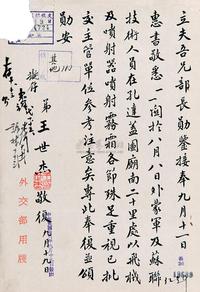 立夫吾兄部長勛鑒接奉九月十一日
惠書敬悉一一關於八月八日外蒙軍及蘇聯
技術人員在孔達蓋圖廟南二十里處以飛機
及噴射器噴射霧霜各節殊足重視已批
交主管單位參考注意矣專此奉復並頌
勛安
弟王世杰敬復 九月十九日
外交部用牋
其他